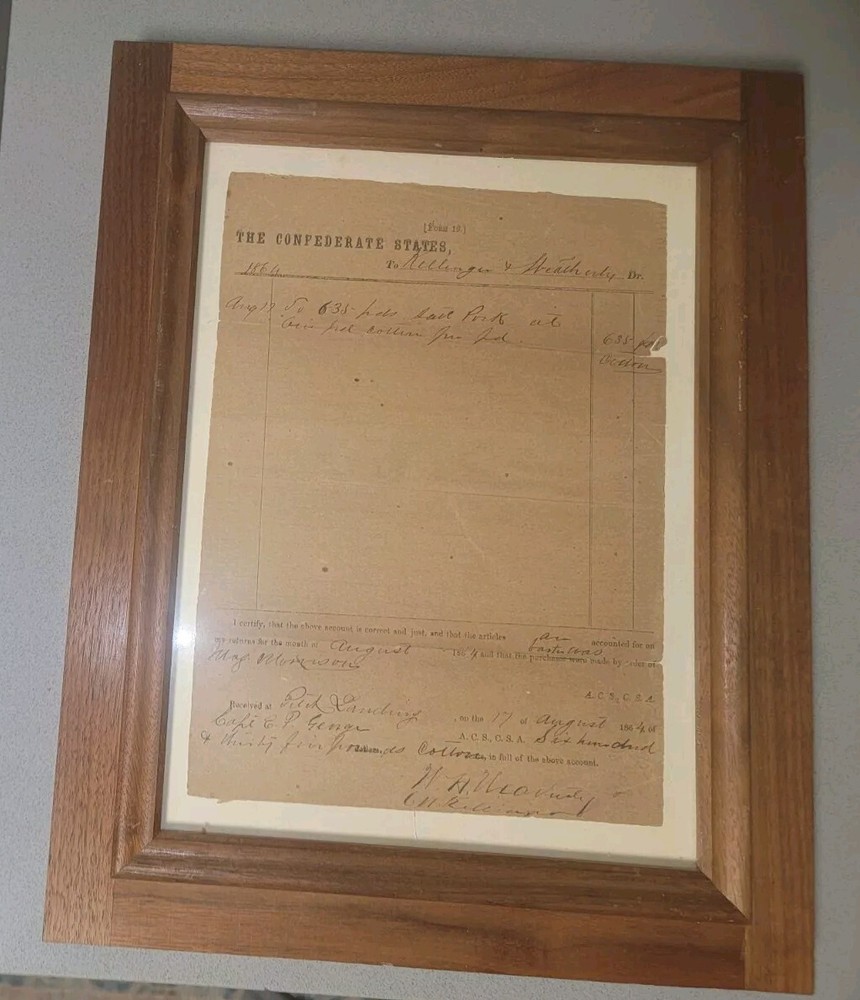 [Form 19.]
THE CONFEDERATE STATES,
To Kellinger & Weatherly Dr.
1864
Aug 17 To 635 pds Salt Pork at
one pd cotton per pd. 635 pds
Cotton
I certify, that the above account is correct and just; and that the articles accounted for on
my returns for the month of August 1864 and that the purchases were made by order of
Maj Morrison
A. C. S., C. S. A.
Received at Landing, on the 17 of August 1864 of
Capt E. P. George A. C. S., C. S. A. Six hundred
& thirty five pounds Cotton, in full of the above account.